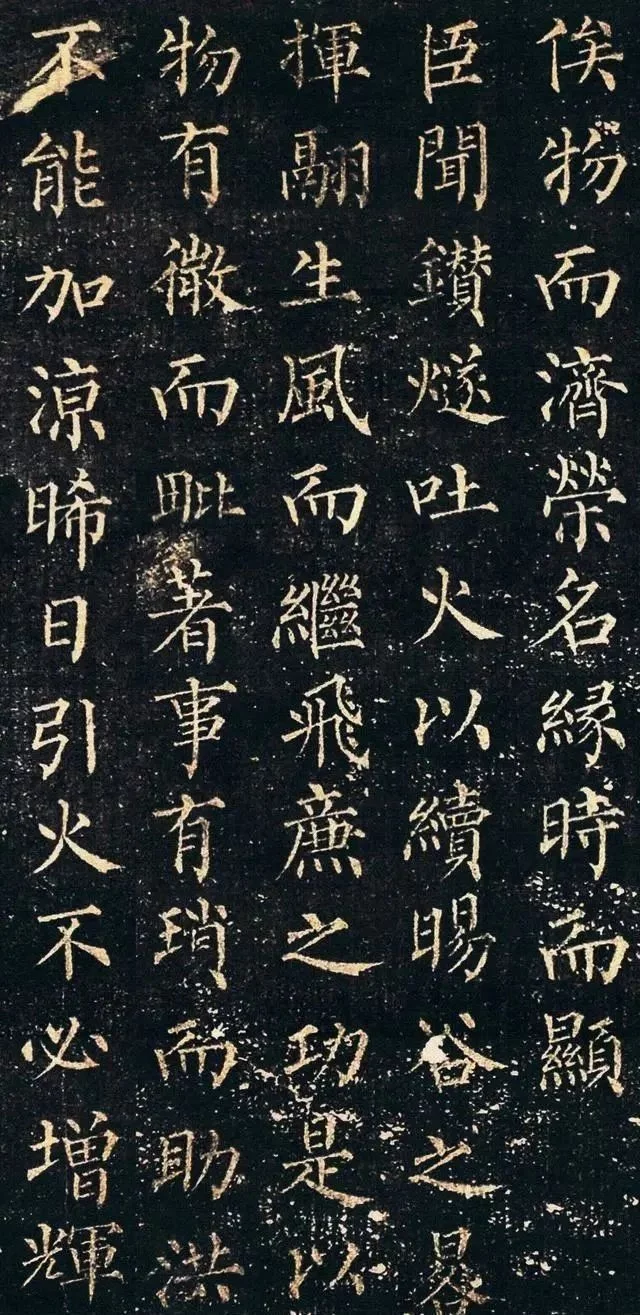 俟物而濟榮名緣時而顯
臣聞鑽燧吐火以續暘谷之晷
揮翮生風而繼飛廉之功是以
物有微而毗著事有瑣而助洪
不能加涼晞日引火不必增輝